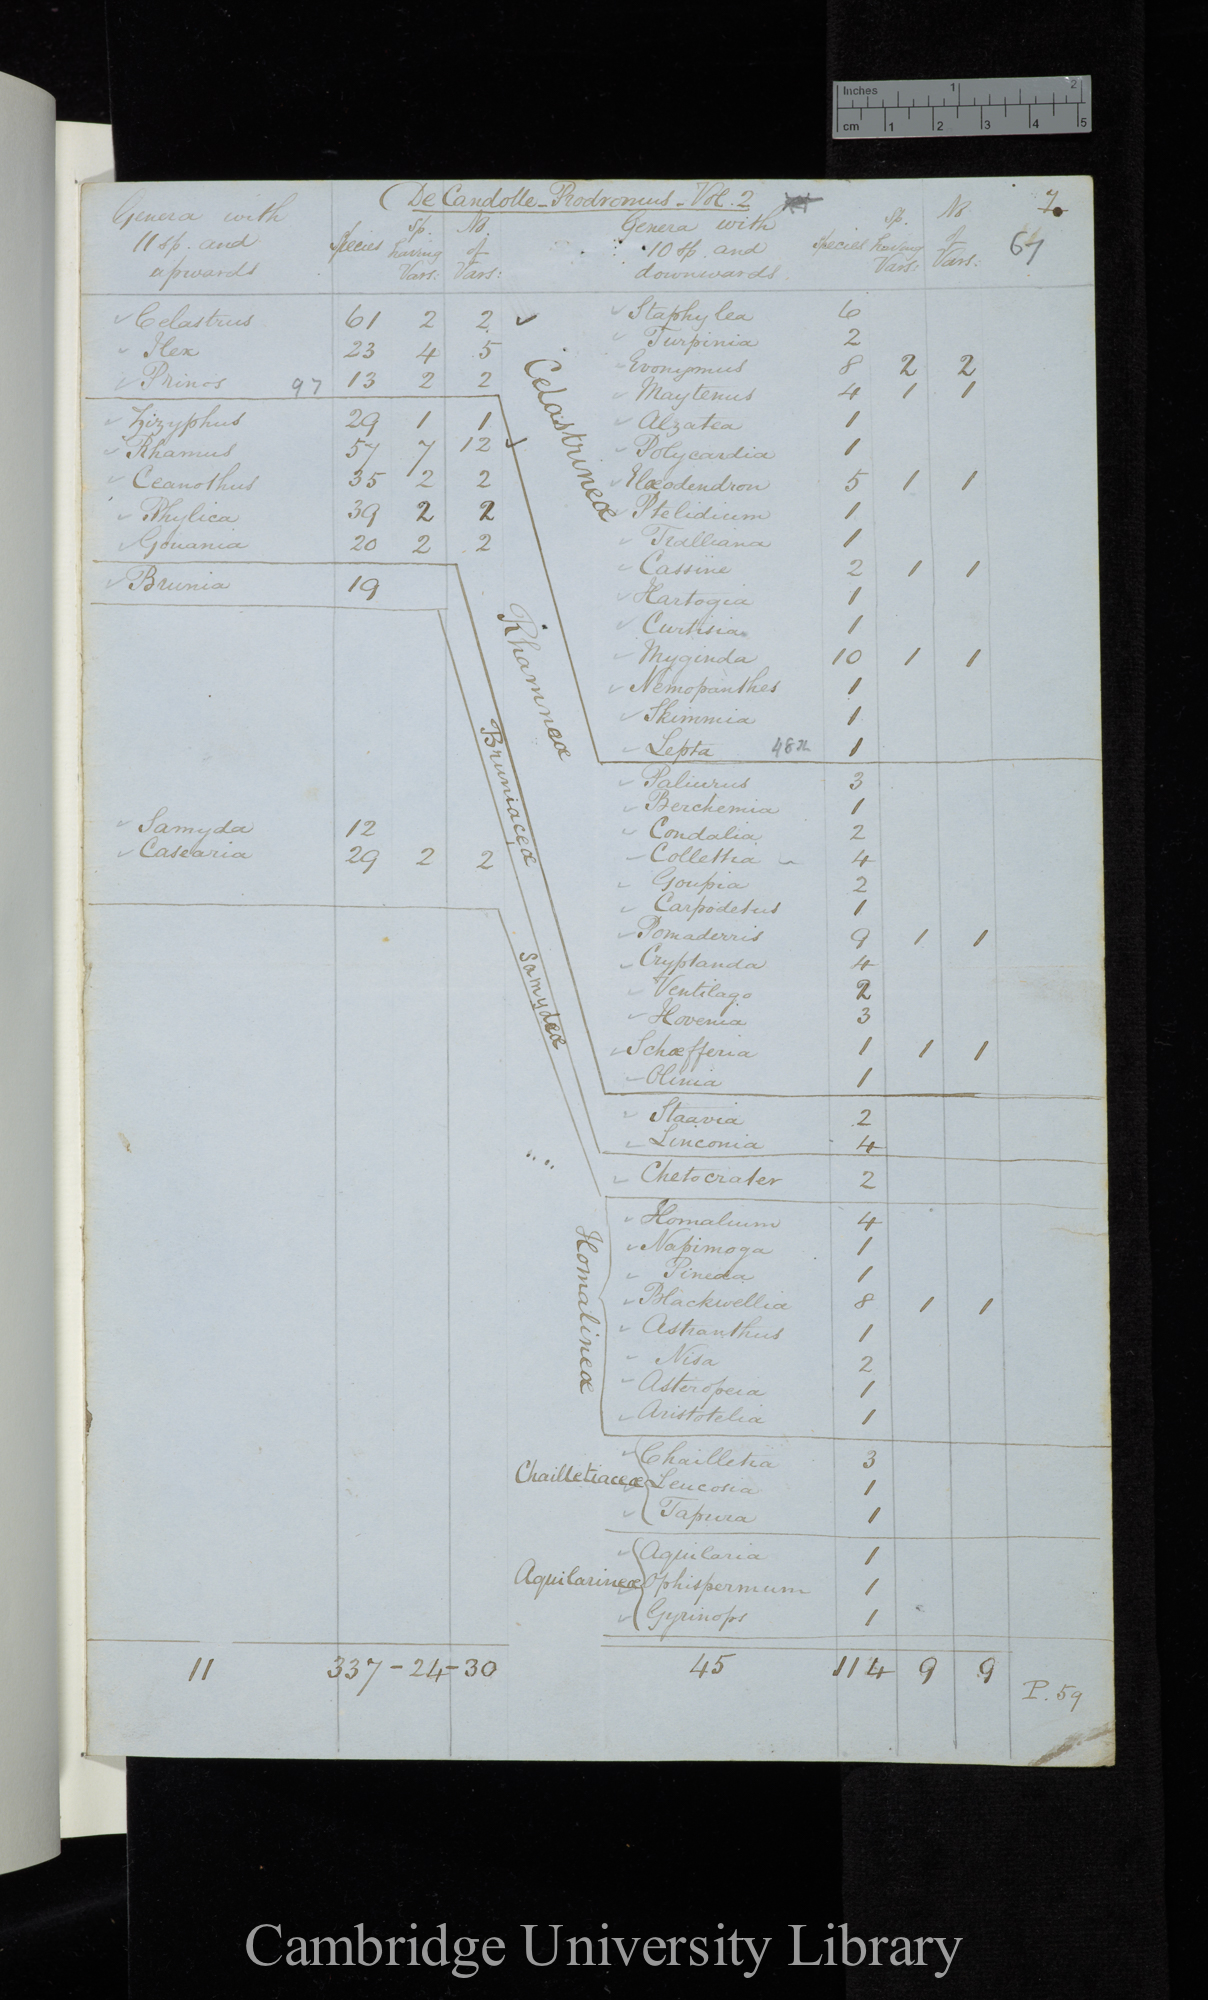 Inches 1 2
cm 1 2 3 4 5
De Candolle - Prodromus - Vol. 2
7.
67
Genera with 11 sp. and upwards | Species | sp. having Vars: | No. of Vars: | Genera with 10 sp. and downwards | Species | sp. having Vars: | No. of Vars:
Celastrus 61 2 2
Ilex 23 4 5
Prinos 97 13 2 2
Zizyphus 29 1 1
Rhamus 57 7 12
Ceanothus 35 2 2
Phylica 39 2 2
Gouania 20 2 2
Brunia 19
Samyda 12
Casearia 29 2 2
11 337 - 24 - 30
Celastrineæ
Staphylea 6
Turpinia 2
Evonymus 8 2 2
Maytenus 4 1 1
Alzatea 1
Polycardia 1
Elæodendron 5 1 1
Ptelidium 1
Tralliana 1
Cassine 2 1 1
Hartogia 1
Curtisia 1
Myginda 10 1 1
Nemopanthes 1
Skimmia 1
Lepta 48 1
Rhamneæ
Paliurus 3
Berchemia 1
Condalia 2
Collettia 4
Goupia 2
Carpodetus 1
Pomaderris 9 1 1
Cryptanda 4
Ventilago 2
Hovenia 3
Schæfferia 1 1 1
Olinia 1
Bruniaceæ
Staavia 2
Linconia 4
Samydeæ
Chetocrater 2
Homalineæ
Homalium 4
Napimoga 1
Pineda 1
Blackwellia 8 1 1
Astranthus 1
Nisa 2
Asteropeia 1
Aristotelia 1
Chailletiaceæ
Chailletia 3
Leucosia 1
Tapura 1
Aquilarineæ
Aquilaria 1
Ophispermum 1
Gyrinops 1
45 114 9 9
P. 59
Cambridge University Library